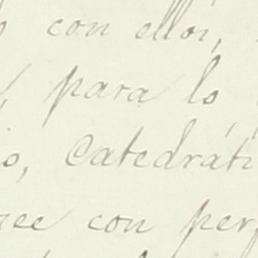 con ellos,
para lo
Catedráti
con per